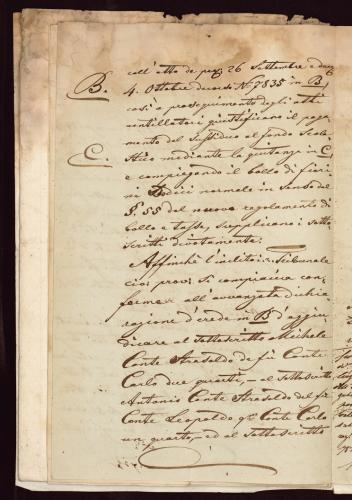 coll' atto de prej 26 Settembre e
B. 4. Ottobre decorsi N.º 7835 in B/
così a proseguimento degli atti
ventillatori giustificano il paga-
mento del sussidio al fondo Scola-
C. stico mediante la quitanza in C/
e compiegando il bollo di fiori-
ni Dodici normale in senso del
§. 55 del nuovo regolamento di
bollo e tasse, supplicano i sotto
scritti divotamente:
Affinchè l'inclito i: r: Tribunale
civ: prov: si compiaccia con-
forme all' avvanzata dichia-
razione d'erede in B d'aggiu-
dicare al sottoscritto Michele
Conte Strasoldo de fù Conte
Carlo due quarti, – al sottoscritto
Antonio Conte Strasoldo del fù
Conte Leopoldo q.m Conte Carlo
un quarto, – ed al sottoscritto